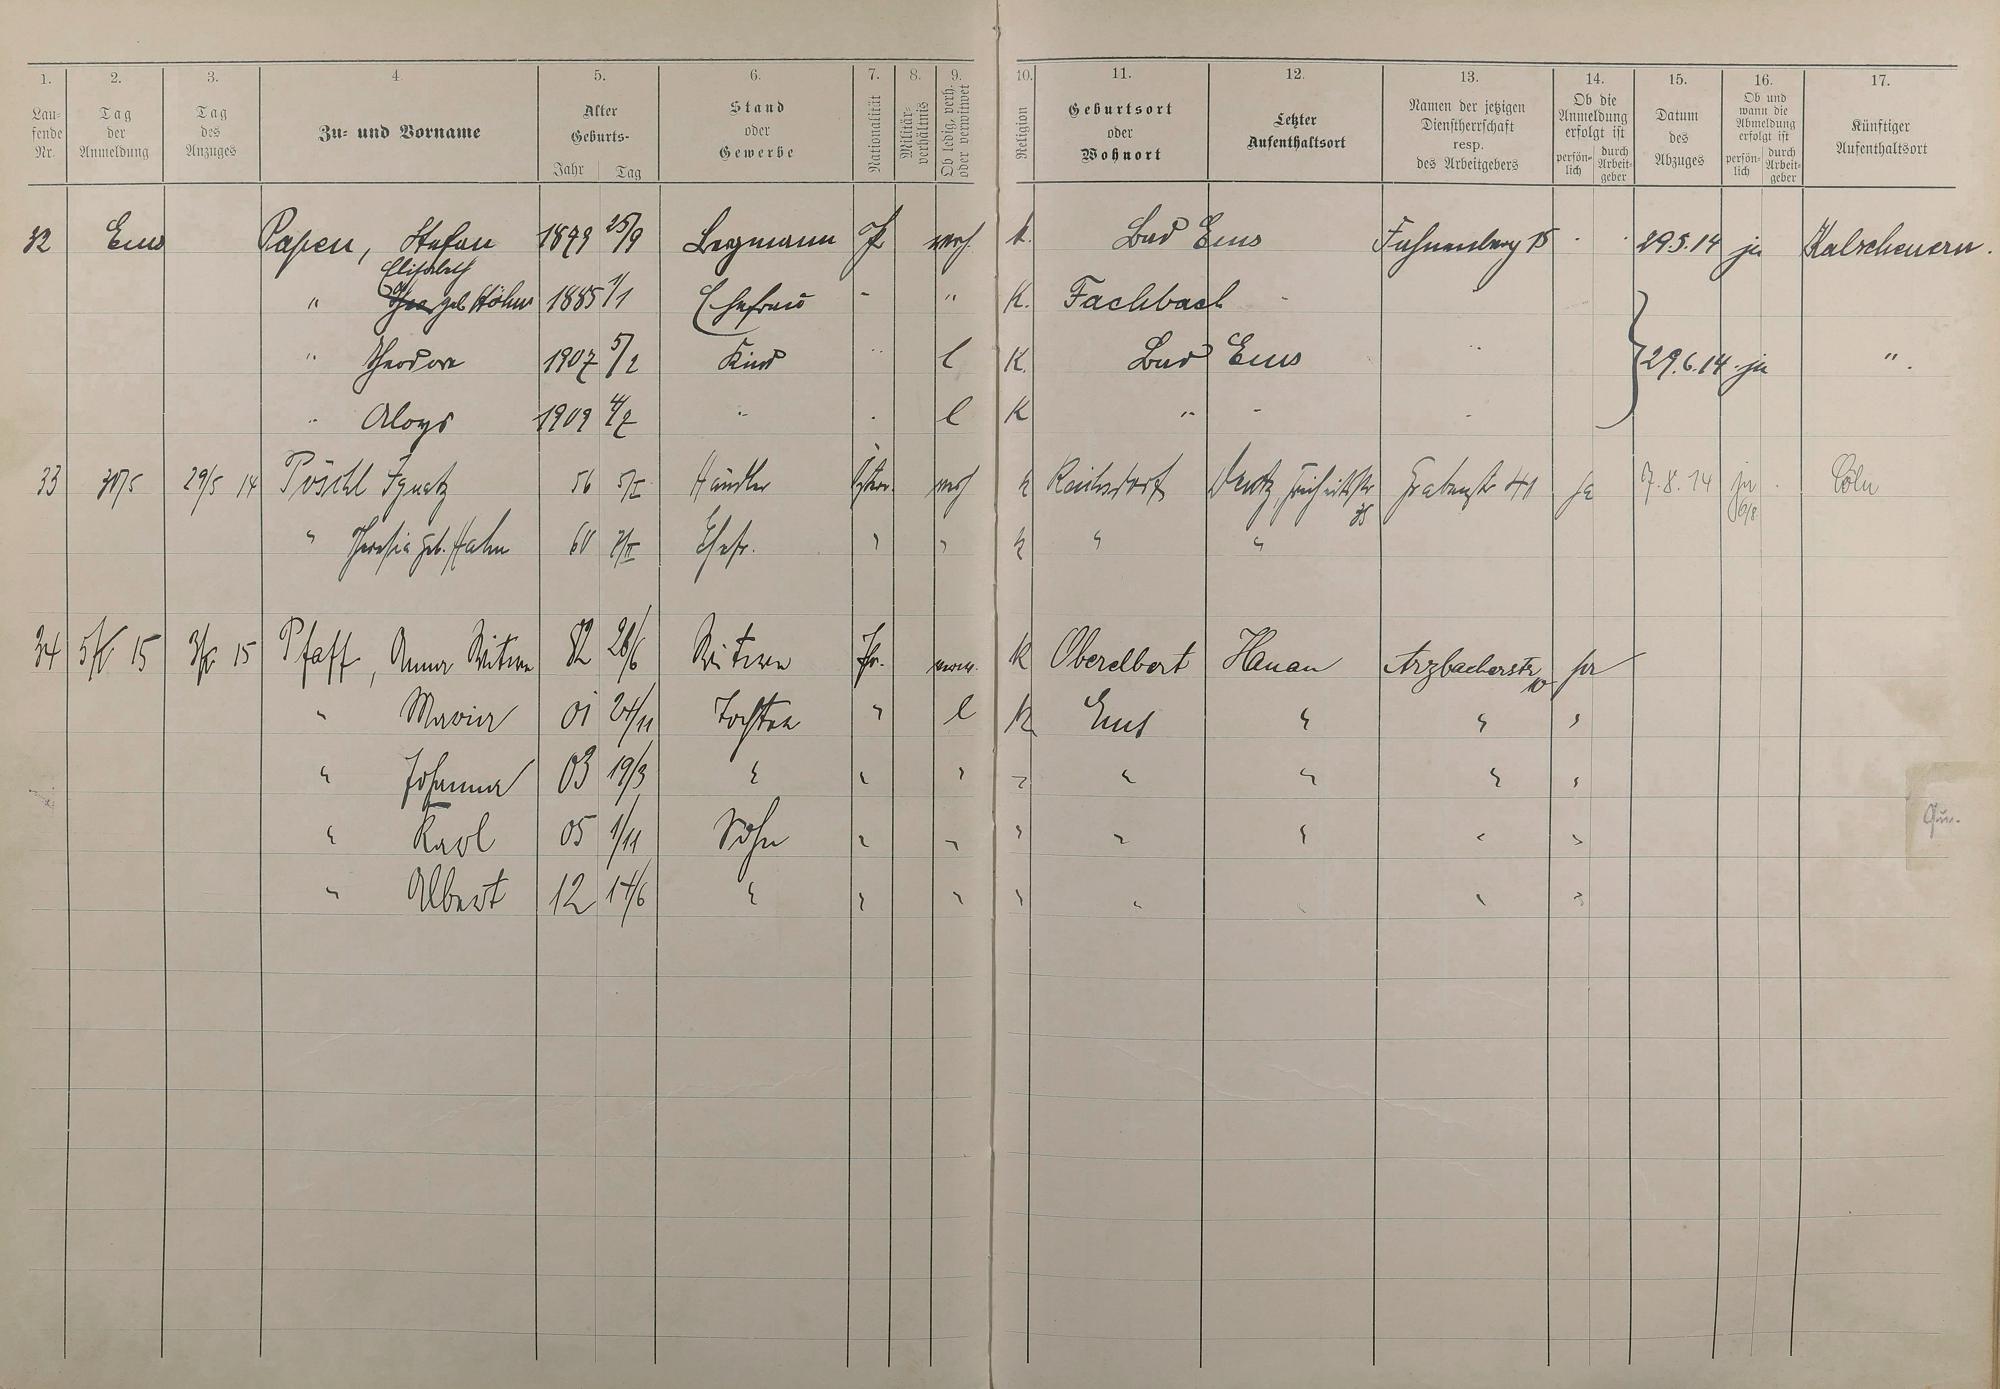 1. 2. 3. 4. 5. 6. 7. 8. 9. 10. 11. 12. 13. 14. 15. 16. 17.
Lau-fende Nr.
Tag der Anmeldung
Tag des Anzuges
Zu- und Vorname
Alter Geburts- Jahr Tag
Stand oder Gewerbe
Nationalität
Militär-verhältnis
Ob ledig, verh. oder verwitwet
Religion
Geburtsort oder Wohnort
Letzter Aufenthaltsort
Namen der jetzigen Dienstherrschaft resp. des Arbeitgebers
Ob die Anmeldung erfolgt ist persön-lich durch Arbeit-geber
Datum des Abzuges
Ob und wann die Abmeldung erfolgt ist persön-lich durch Arbeit-geber
Künftiger Aufenthaltsort
32 Ems Papen, Stefan 1879 25/9 Bergmann Pr. verh. k. Bad Ems Fahnenberg 15 29.5.14 ja Kalscheuern.
Elisabeth
" geb Höhn 1885 1/1 Ehefrau - " K. Fachbach -
" Theodor 1907 5/2 Kind " l K. Bad Ems " 29.6.14 ja ".
" Aloys 1909 4/7 " . l K " - -
33 30/5 29/5 14 Pöschl Ignatz 56 5/I Händler Öster. verh k Reichsdorf Deutz, Freiheitstr 35 Grabenstr 41 ja 7.8.14 ja 6/8 Cöln
" Theresia geb. Hahn 60 Ehefr. " " k " "
34 15 15 Pfaff, Anna Witwe 82 26/6 Witwe Pr. verw. K Oberelbert Hanau Arzbacherstr 10 ja
" Maria 01 24/11 Tochter " l K Ems " " "
" Johanna 03 19/3 " " " " " " " "
" Karl 05 1/11 Sohn " " " " " " "
" Albert 12 14/6 " " " " " " " "